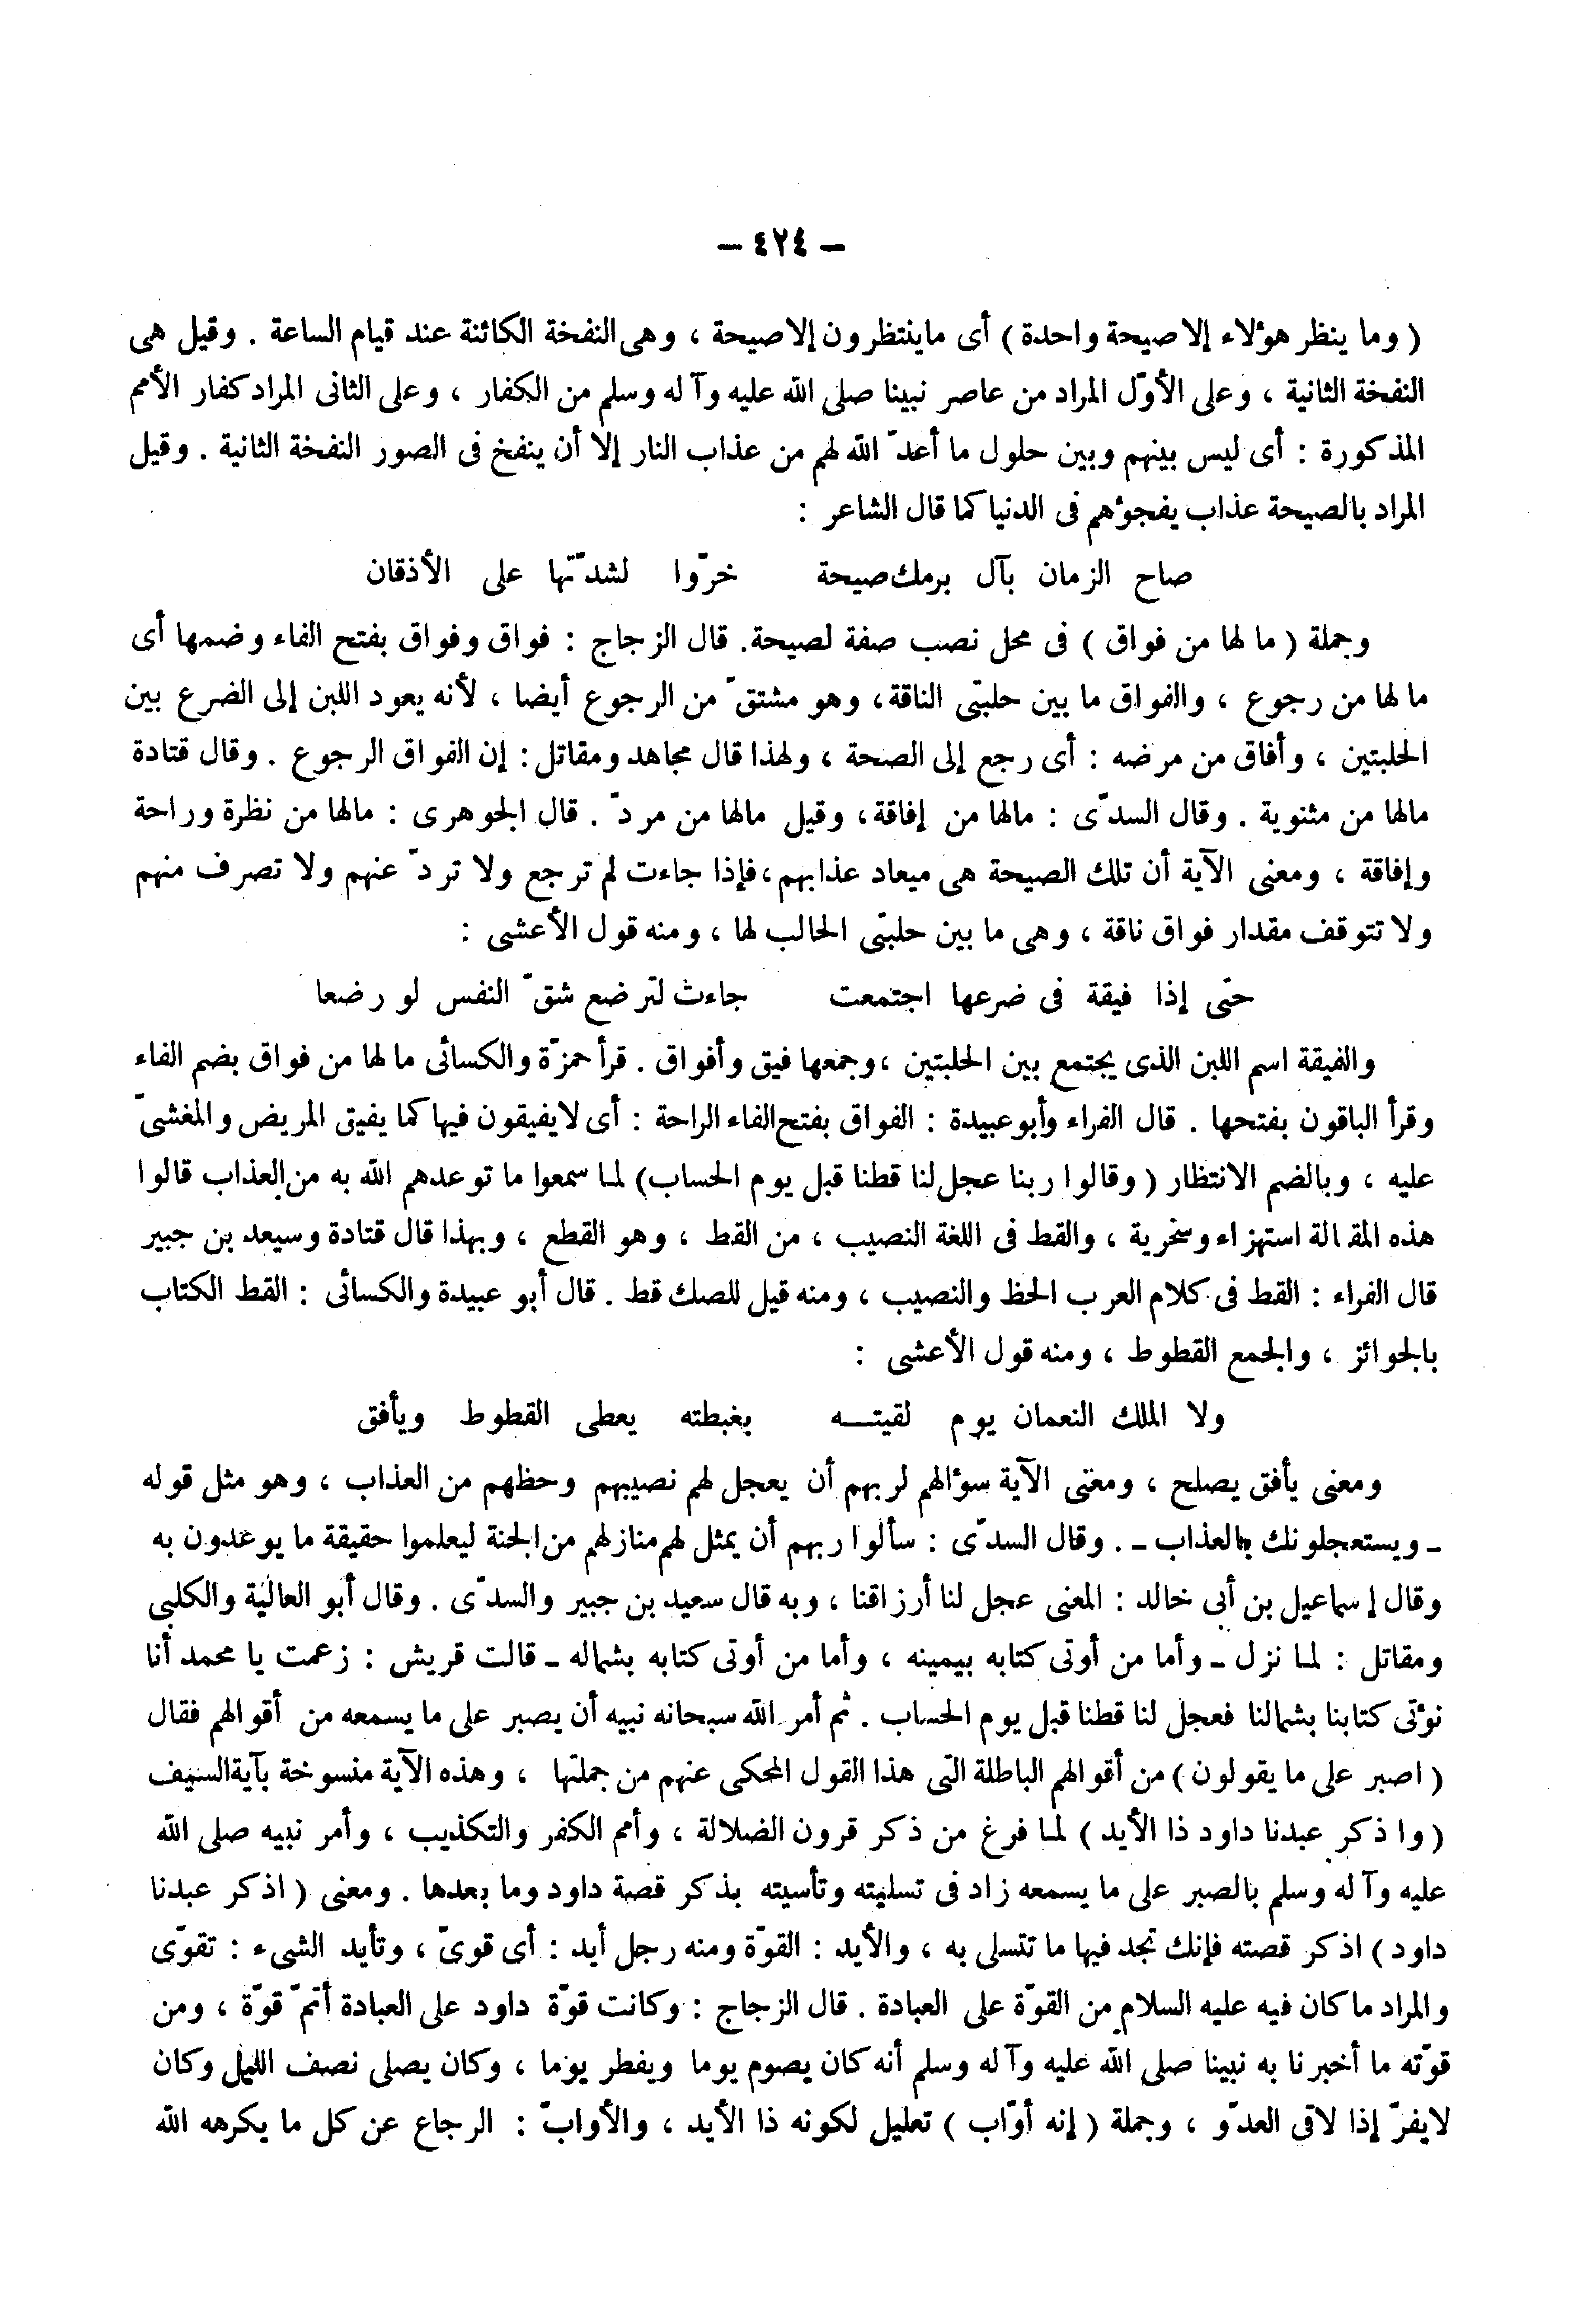 — ٤٢٤ —
( وما ينظر هؤلاء إلا صيحة واحدة ) أى ماينتظرون إلا صيحة ، وهى النفخة الكائنة عند قيام الساعة . وقيل هى
النفخة الثانية ، وعلى الأوّل المراد من عاصر نبينا صلى الله عليه وآله وسلم من الكفار ، وعلى الثانى المراد كفار الأمم
المذكورة : أى ليس بينهم وبين حلول ما أعدّ الله لهم من عذاب النار إلا أن ينفخ فى الصور النفخة الثانية . وقيل
المراد بالصيحة عذاب يفجؤهم فى الدنيا كما قال الشاعر :
صاح الزمان بآل برمك صيحة خرّوا لشدّتها على الأذقان
وجملة ( ما لها من فواق ) فى محل نصب صفة لصيحة. قال الزجاج : فواق وفواق بفتح الفاء وضمها أى
ما لها من رجوع ، والفواق ما بين حلبتى الناقة، وهو مشتقّ من الرجوع أيضا ، لأنه يعود اللبن إلى الضرع بين
الحلبتين ، وأفاق من مرضه : أى رجع إلى الصحة ، ولهذا قال مجاهد ومقاتل : إن الفواق الرجوع . وقال قتادة
مالها من مثنوية . وقال السدّى : مالها من إفاقة، وقيل مالها من مردّ . قال الجوهرى : مالها من نظرة وراحة
وإفاقة ، ومعنى الآية أن تلك الصيحة هى ميعاد عذابهم، فإذا جاءت لم ترجع ولا تردّ عنهم ولا تصرف منهم
ولا تتوقف مقدار فواق ناقة ، وهى ما بين حلبتى الحالب لها ، ومنه قول الأعشى :
حتى إذا فيقة فى ضرعها اجتمعت جاءت لترضع شقّ النفس لو رضعا
والفيقة اسم اللبن الذى يجتمع بين الحلبتين ، وجمعها فيق وأفواق . قرأ حمزة والكسائى ما لها من فواق بضم الفاء
وقرأ الباقون بفتحها . قال الفراء وأبوعبيدة : الفواق بفتح الفاء الراحة : أى لايفيقون فيها كما يفيق المريض والمغشىّ
عليه ، وبالضم الانتظار ( وقالوا ربنا عجل لنا قطنا قبل يوم الحساب) لما سمعوا ما توعدهم الله به من العذاب قالوا
هذه المقالة استهزاء وسخرية ، والقط فى اللغة النصيب ، من القط ، وهو القطع ، وبهذا قال قتادة وسيعد بن جبير
قال الفراء : القط فى كلام العرب الحظ والنصيب ، ومنه قيل للصك قط . قال أبو عبيدة والكسائى : القط الكتاب
بالجوائز ، والجمع القطوط ، ومنه قول الأعشى :
ولا الملك النعمان يوم لقيتـــه بغبطته يعطى القطوط ويأفق
ومعنى يأفق يصلح ، ومعنى الآية سؤالهم لربهم أن يعجل لهم نصيبهم وحظهم من العذاب ، وهو مثل قوله
ـ ويستعجلونك بالعذاب ـ . وقال السدّى : سألوا ربهم أن يمثل لهم منازلهم من الجنة ليعلموا حقيقة ما يوعدون به
وقال إسماعيل بن أبى خالد : المعنى عجل لنا أرزاقنا ، وبه قال سعيد بن جبير والسدّى . وقال أبو العالية والكلبى
ومقاتل : لما نزل ـ وأما من أوتى كتابه بيمينه ، وأما من أوتى كتابه بشماله ـ قالت قريش : زعمت يا محمد أنا
نؤتى كتابنا بشمالنا فعجل لنا قطنا قبل يوم الحساب . ثم أمر الله سبحانه نبيه أن يصبر على ما يسمعه من أقوالهم فقال
( اصبر على ما يقولون ) من أقوالهم الباطلة التى هذا القول المحكى عنهم من جملتها ، وهذه الآية منسوخة بآية السيف
( واذكر عبدنا داود ذا الأيد ) لما فرغ من ذكر قرون الضلالة ، وأمم الكفر والتكذيب ، وأمر نبيه صلى الله
عليه وآله وسلم بالصبر على ما يسمعه زاد فى تسليته وتأسيته بذكر قصة داود وما بعدها . ومعنى ( اذكر عبدنا
داود ) اذكر قصته فإنك تجد فيها ما تتسلى به ، والأيد : القوّة ومنه رجل أيد : أى قوىّ ، وتأيد الشىء : تقوّى
والمراد ما كان فيه عليه السلام من القوّة على العبادة . قال الزجاج : وكانت قوّة داود على العبادة أتمّ قوّة ، ومن
قوّته ما أخبرنا به نبينا صلى الله عليه وآله وسلم أنه كان يصوم يوما ويفطر يوما ، وكان يصلى نصف الليل وكان
لايفرّ إذا لاقى العدوّ ، وجملة ( إنه أوّاب ) تعليل لكونه ذا الأيد ، والأوابّ : الرجاع عن كل ما يكرهه الله